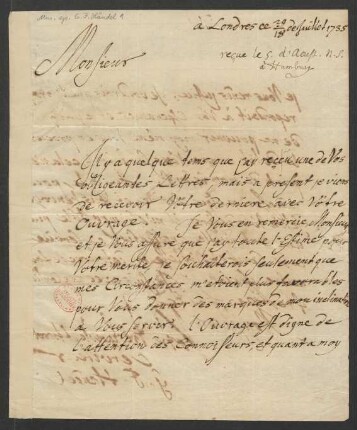 à Londres ce 29/18 de Juillet 1735
reçue le 5. d'Aoust. N.S.
à Hambourg
Monsieur
Il y a quelque tems que j'ay reçeu une de Vos
obligeantes Lettres, mais a present je viens
de recevoir Vôtre derniere avec Votre
Ouvrage. Je Vous en remercie Monsieur
et je Vous assure que j'ay toute l'Estime pour
Votre merite je souhaiterois seulement que
mes Circonstances m'etoient plus favorables
pour Vous donner des marques de mon inclination
à Vous servir. l'Ouvrage est digne de
l'attention des Connoisseurs, et quant a moy